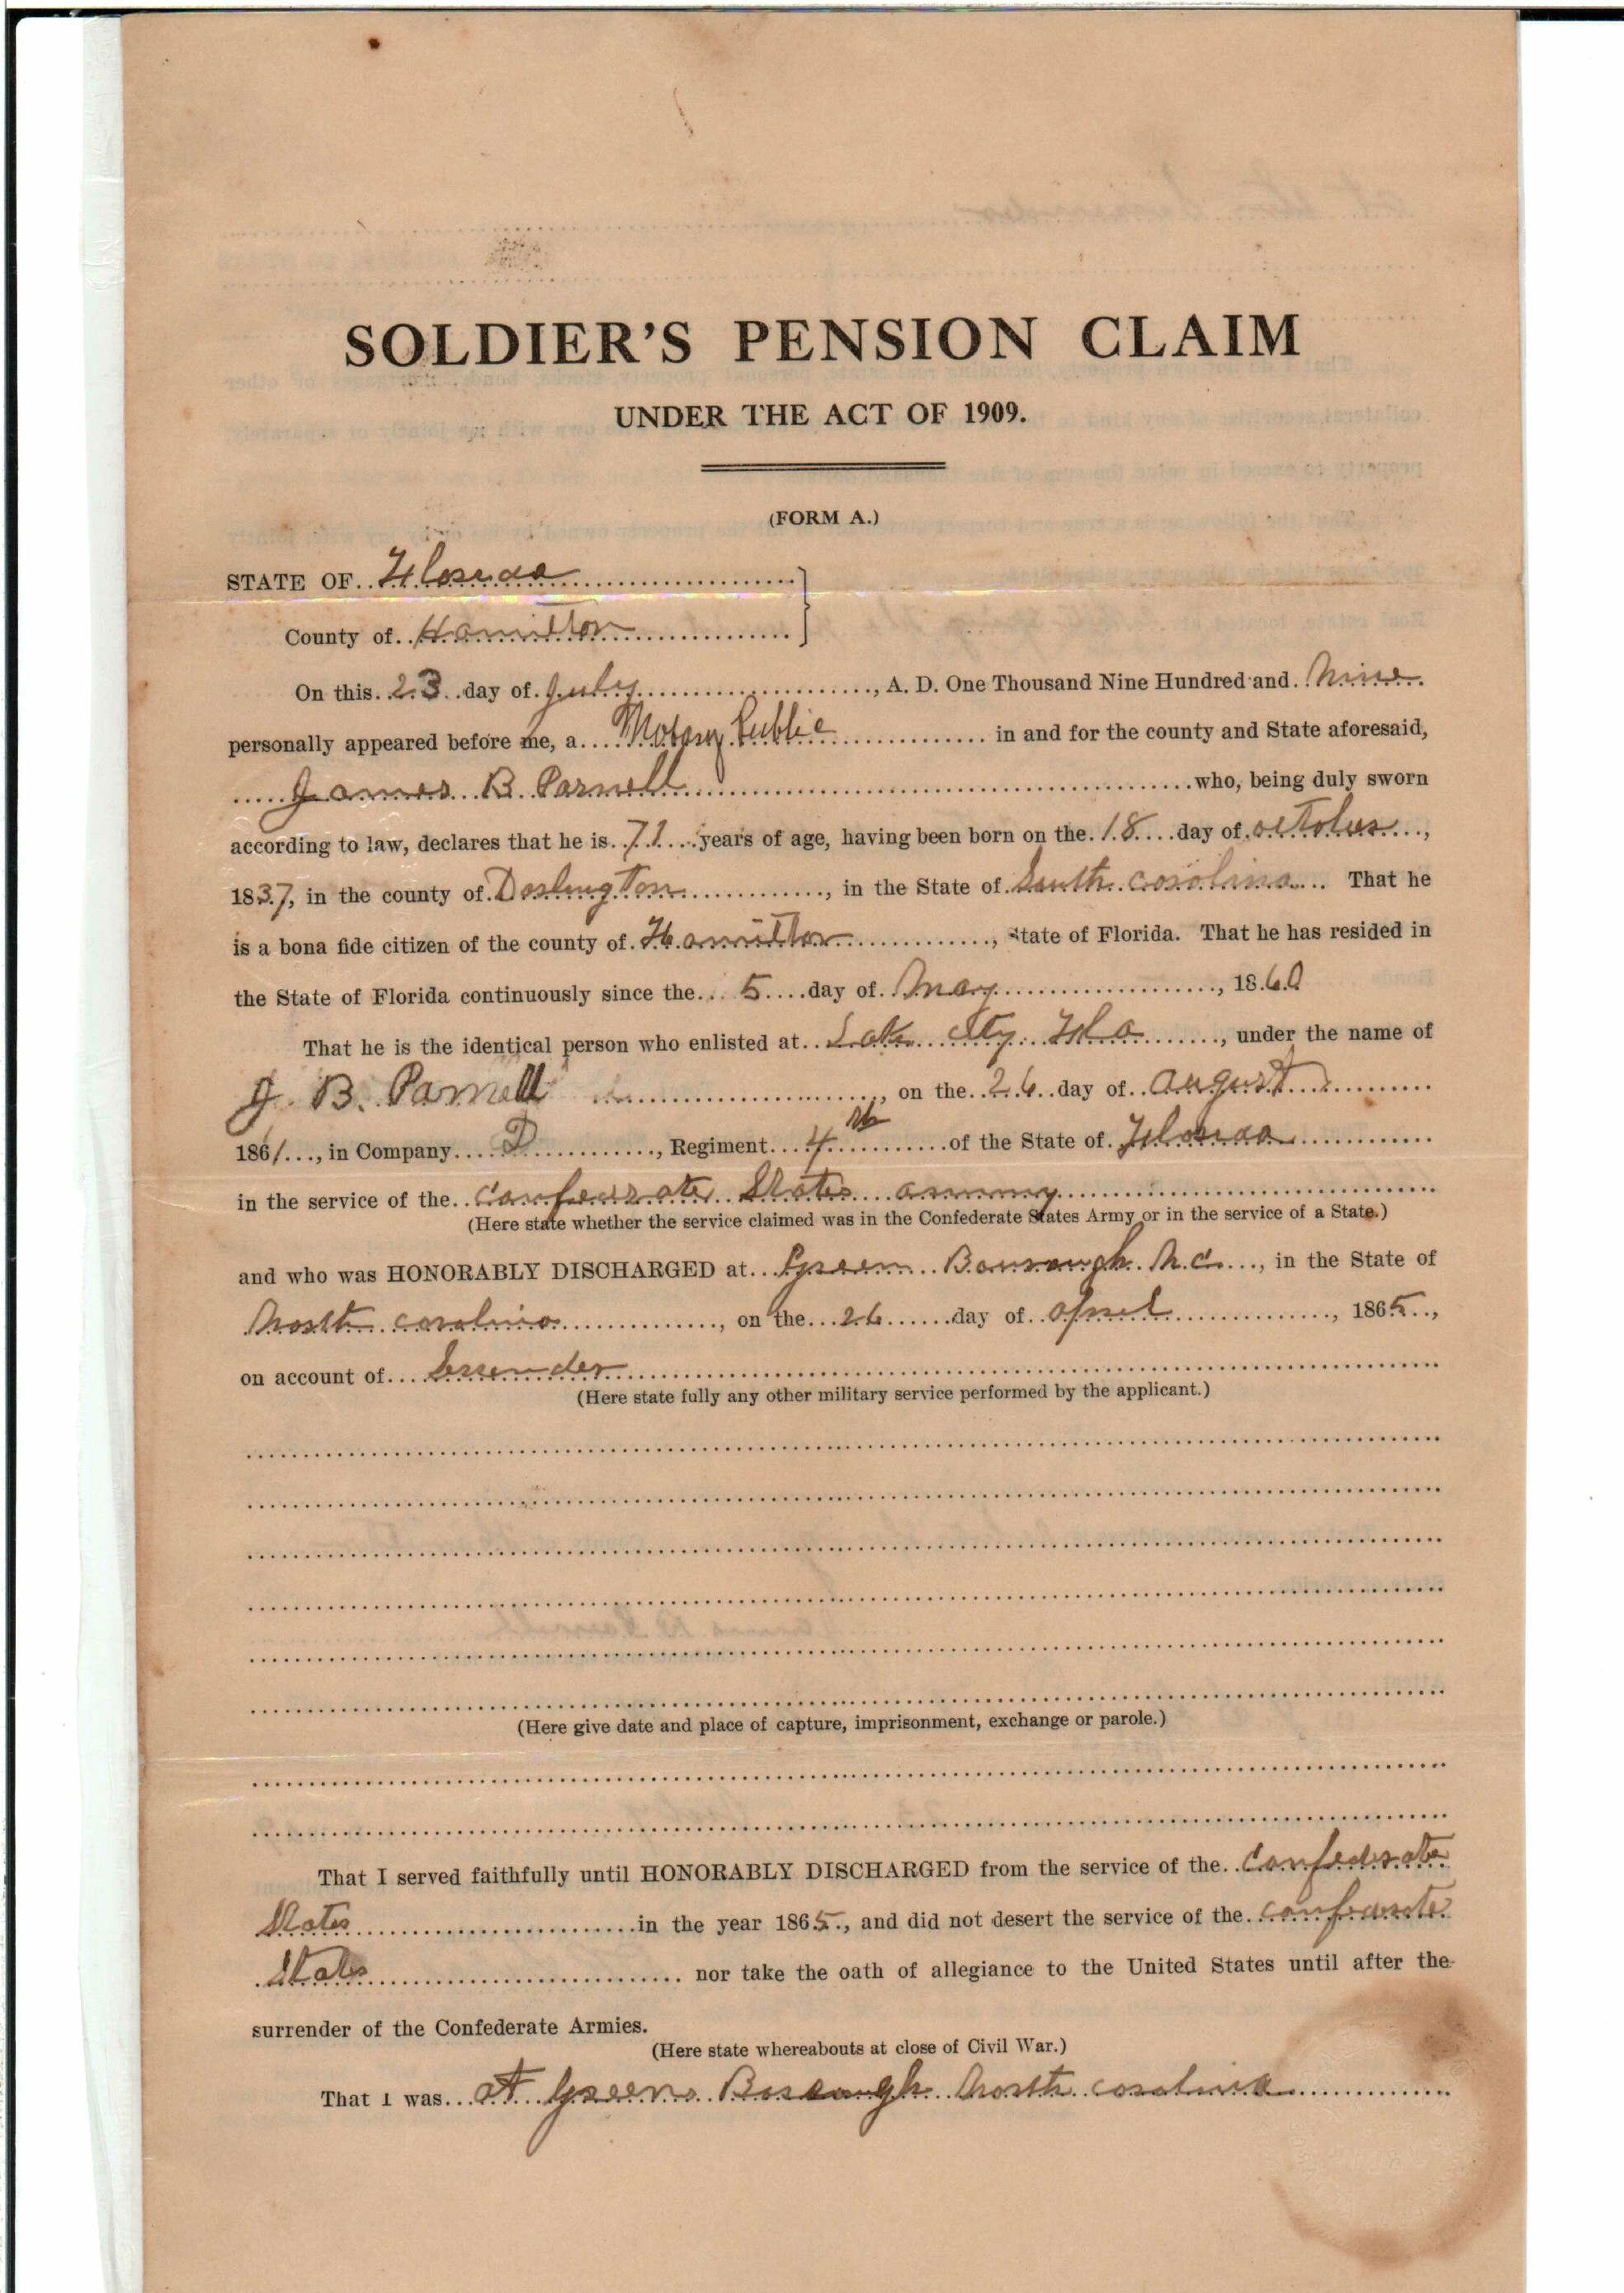 SOLDIER'S PENSION CLAIM
UNDER THE ACT OF 1909.
(FORM A.)
STATE OF Florida
County of Hamilton
On this 23 day of July, A. D. One Thousand Nine Hundred and Nine
personally appeared before me, a Notary Public in and for the county and State aforesaid,
James B. Parnell who, being duly sworn
according to law, declares that he is 71 years of age, having been born on the 18 day of october,
1837, in the county of Darlington, in the State of South carolina. That he
is a bona fide citizen of the county of Hamilton, State of Florida. That he has resided in
the State of Florida continuously since the 5 day of May, 1860
That he is the identical person who enlisted at Lake city Fla, under the name of
J. B. Parnell, on the 26 day of august
1861, in Company D, Regiment 4th of the State of Florida
in the service of the confedrate States ammy
(Here state whether the service claimed was in the Confederate States Army or in the service of a State.)
and who was HONORABLY DISCHARGED at Green Bourough N.C., in the State of
North carolina, on the 26 day of april, 1865,
on account of Surrender
(Here state fully any other military service performed by the applicant.)
(Here give date and place of capture, imprisonment, exchange or parole.)
That I served faithfully until HONORABLY DISCHARGED from the service of the Confederate
States in the year 1865, and did not desert the service of the confedrate
States nor take the oath of allegiance to the United States until after the
surrender of the Confederate Armies.
(Here state whereabouts at close of Civil War.)
That I was at Greens Borough North carolina